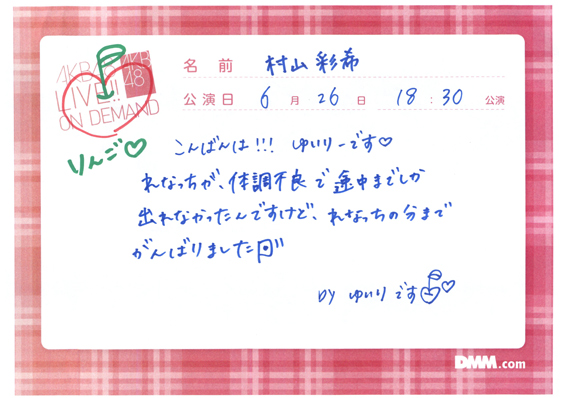 AKB48
LIVE!!
ON DEMAND
りんご♡
名前 村山彩希
公演日 6月26日 18:30公演
こんばんは!!! ゆいりーです♡
れなっちが、体調不良で途中までしか
出れなかったんですけど、れなっちの分まで
がんばりました
by ゆいりです
DMM.com